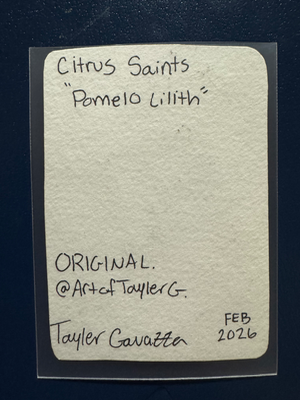 Citrus Saints
"Pomelo Lilith"
ORIGINAL.
@ArtofTaylerG.
Tayler Gavazza
FEB
2026